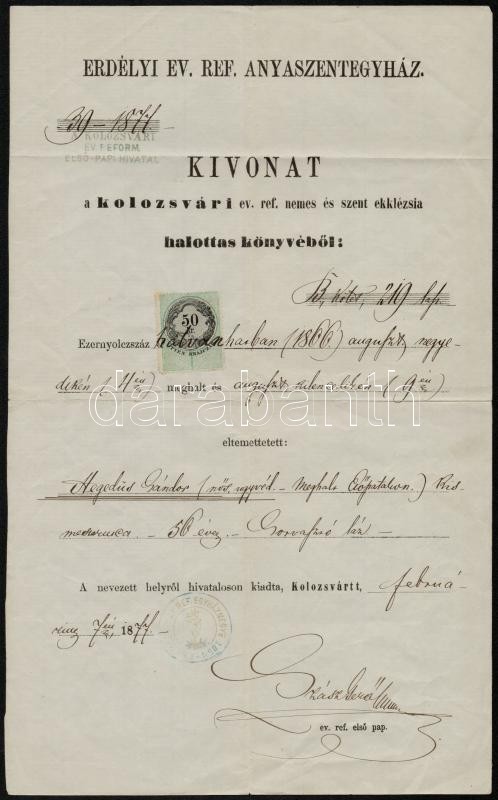 ERDÉLYI EV. REF. ANYASZENTEGYHÁZ.
39 - 1877.
KOLOZSVÁRI
EV. REFORM.
ELSŐ-PAPI HIVATAL
KIVONAT
a kolozsvári ev. ref. nemes és szent ekklézsia
halottas könyvéből:
B, kötet, 219 lap.
50
kr.
Ezernyolczszáz hatvanhatban (1866) auguszt, negye-
dikén (4én) meghalt és auguszt kilenczdikén (9én)
darabanth
eltemettetett:
Hegedűs Sándor (nős, ügyvéd - Meghalt Előpatakon.)
56 éves
A nevezett helyről hivataloson kiadta, Kolozsvártt, februá-
7én 1877.
Szász Gerő
ev. ref. első pap.